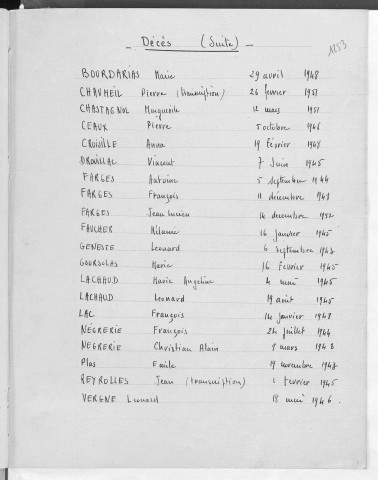 Décès (Suite)
1253
BOURDARIAS Marie 29 avril 1948
CHAUMEIL Pierre (transcription) 26 février 1951
CHASTAGNOL Marguerite 12 mars 1951
CEAUX Pierre 5 octobre 1946
CROUILLE Anna 19 février 1948
DROUILLAC Vincent 7 Juin 1945
FARGES Antoine 5 septembre 1944
FARGES François 11 décembre 1948
FARGES Jean Lucien 14 decembre 1952
FAUCHER Mélanie 16 janvier 1945
GENESTE Leonard 6 septembre
GOURSOLAS Marie 16 fevrier 1945
LACHAUD Marie Angeline 4 mai 1945
LACHAUD Leonard 19 août 1945
LAC François 14 janvier 1948
NEGRERIE François 24 juillet 1944
NEGRERIE Christian Alain 8 mars 1948
Plas Emile 19 novembre 1948
REYROLLES Jean (transcription) fevrier 1945
VERGNE Leonard 18 mai 1946.